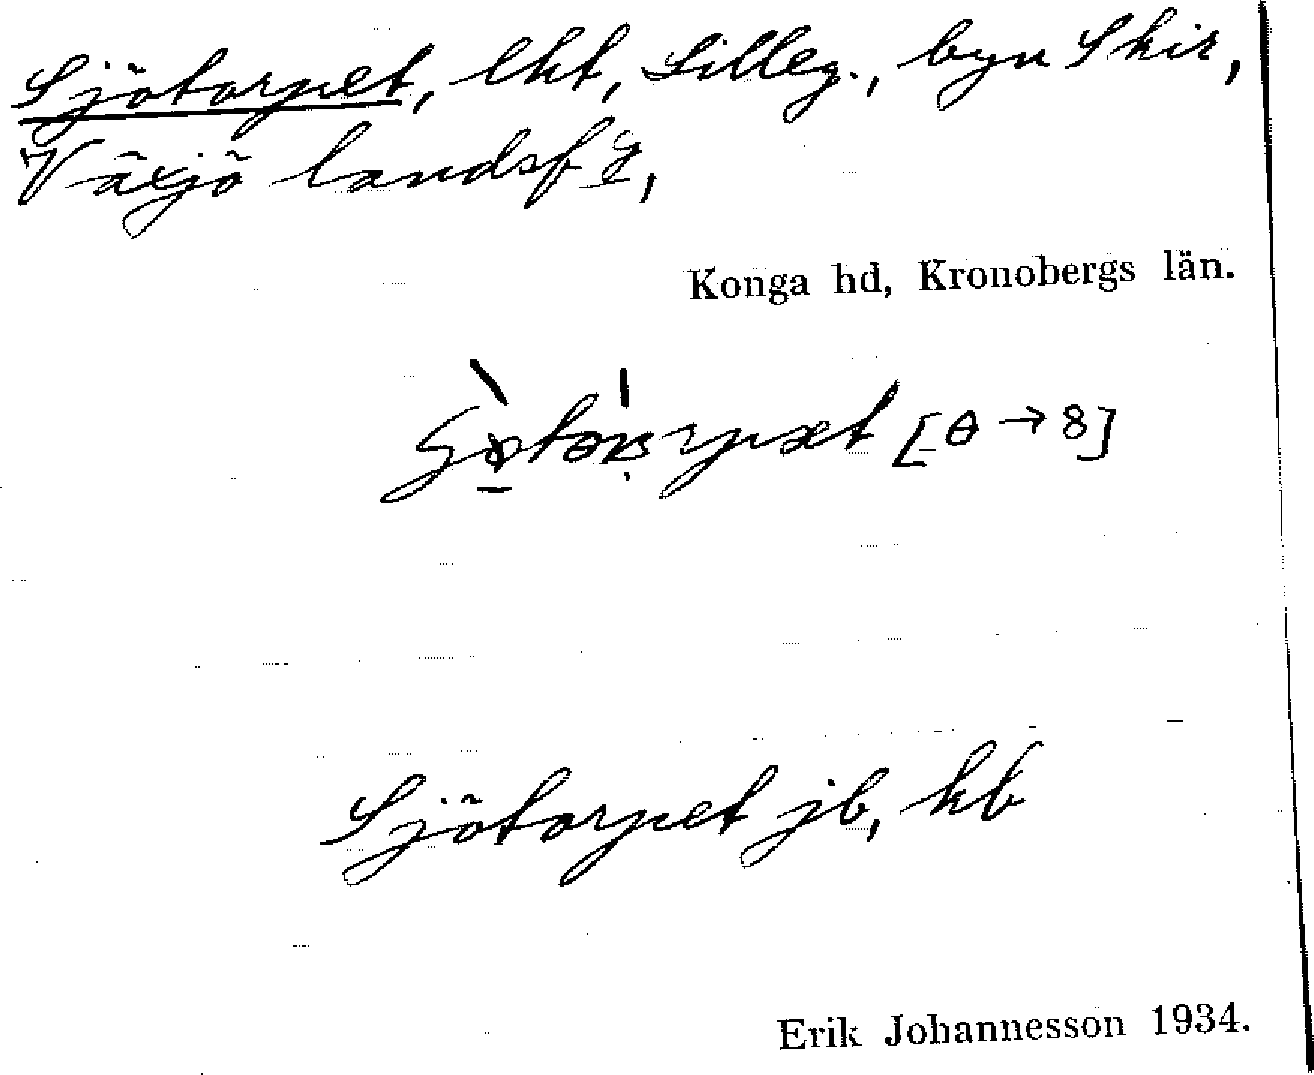 Sjötorpet, lht, Lilleg., byn Skir,
Växjö landsfg,
Konga hd, Kronobergs län.
[θ → 8]
Sjötorpet jb, hb
Erik Johannesson 1934.